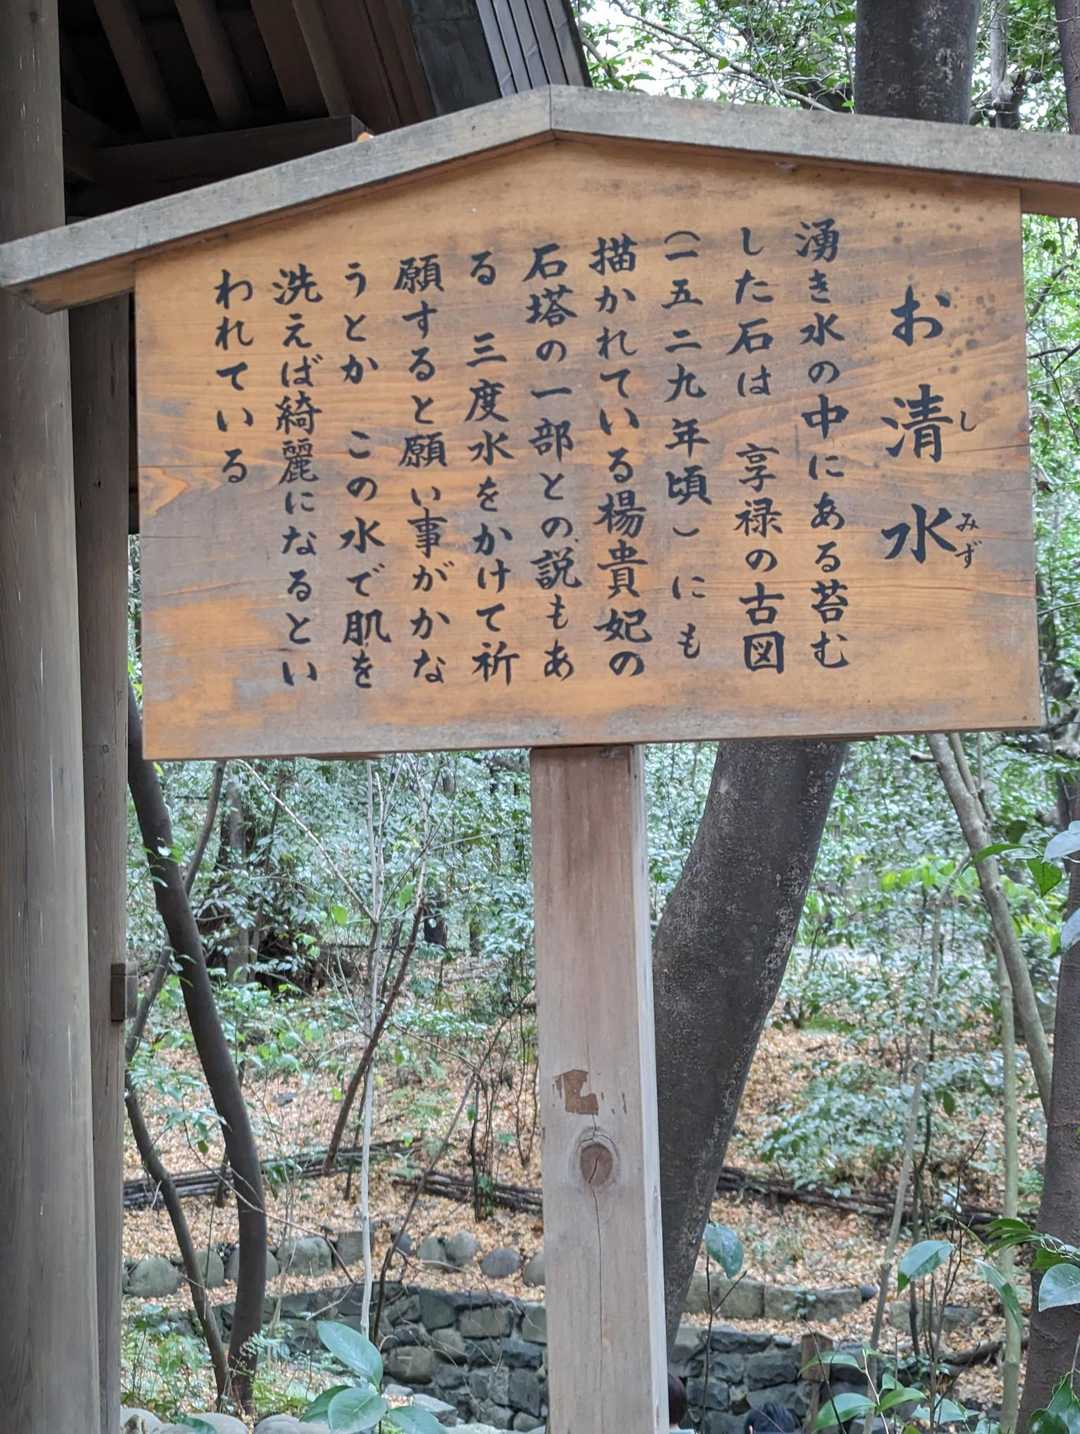 お清水
し
みず
湧き水の中にある苔む
した石は 享禄の古図
(一五二九年頃)にも
描かれている楊貴妃の
石塔の一部との説もあ
る 三度水をかけて祈
願すると願い事がかな
うとか この水で肌を
洗えば綺麗になるとい
われている